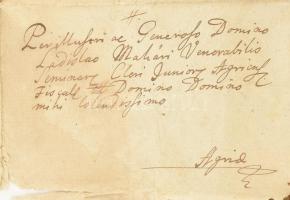 Perillustri ac Generoso Domino
Ladislao Mariári Venerabilis
Seminarÿ Cleri Junioris Agrien
Fiscali Domino Domino
mihi Colendissimo
Agriæ